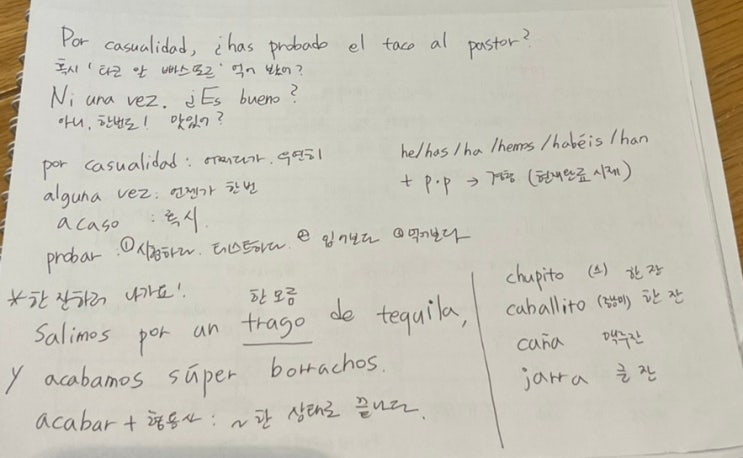 Por casualidad, ¿has probado el taco al pastor?
혹시 '타코 알 빠스또르' 먹어 봤어?
Ni una vez. ¿Es bueno?
아니, 한번도! 맛있어?
por casualidad : 어쩌다가, 우연히
alguna vez : 언젠가 한번
acaso : 혹시.
probar : ① 시험하다, 테스트하다. ② 입어보다 ③ 먹어보다
he/has/ha/hemos/habéis/han
+ p.p → 경험 (현재완료시제)
*한 잔하러 나가요!
한 모금
Salimos por un trago de tequila,
y acabamos súper borrachos.
acabar + 형용사 : ~한 상태로 끝나다.
chupito (소) 한 잔
caballito 한 잔
caña 맥주잔
jarra 큰 잔